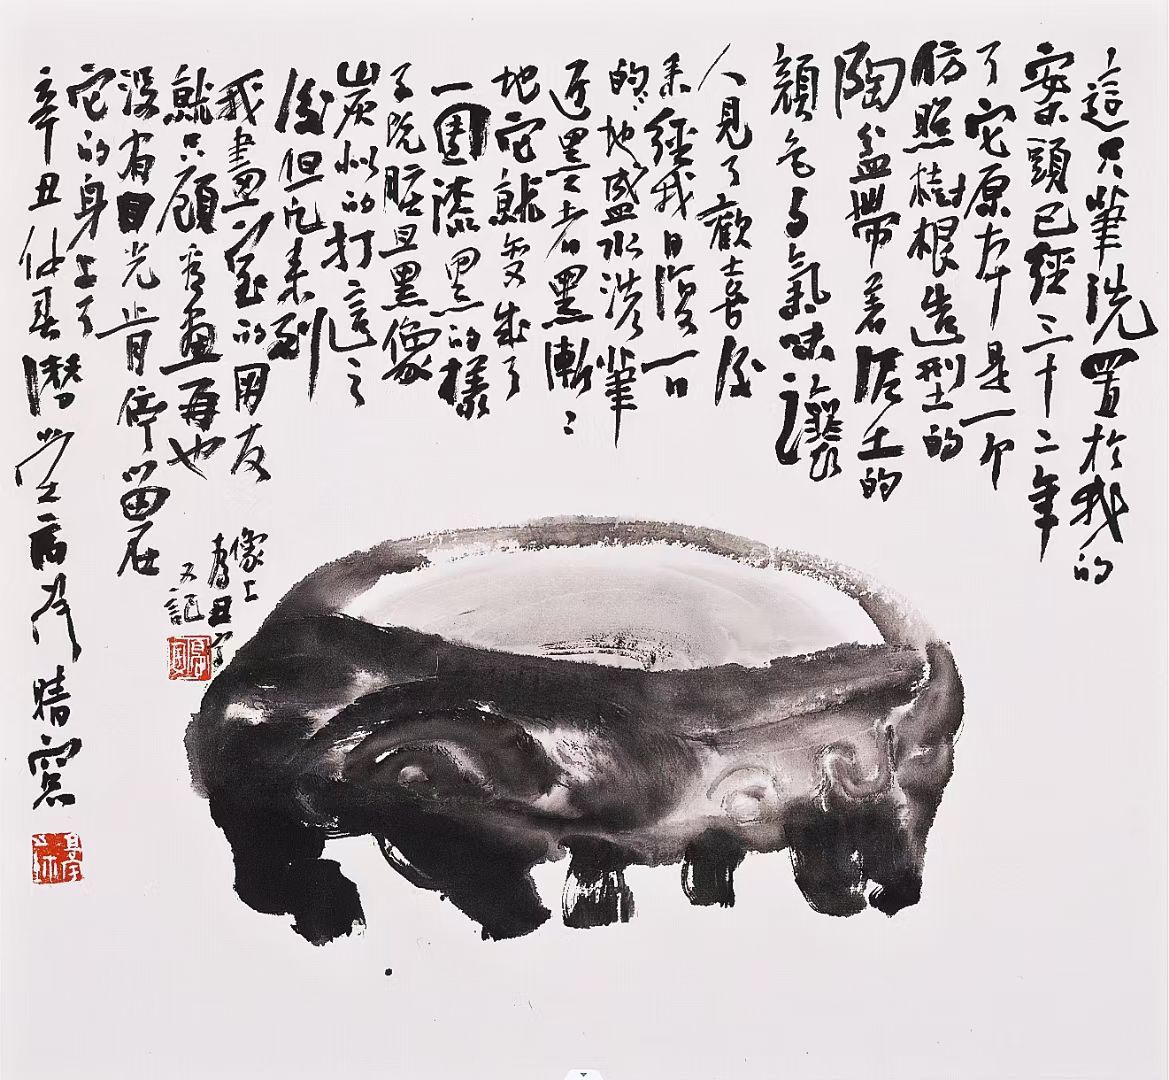 這只筆洗置於我的
案頭已經三十二年
了它原本是一个
仿照樹根造型的
陶盆帶着泥土的
顔色与氣味讓
人見了歡喜後
来經我日復一日
的地盛水洗筆
近墨者黑漸〻
地它就变成了
一團漆黑的樣
子既脏且黑像
炭似的打這之
後但凡来到
我畫室的朋友
就只顧看畫再也
没有目光肯停留在
它的身上了
辛丑仲春潛堂晴窗
像上
丑字
又記